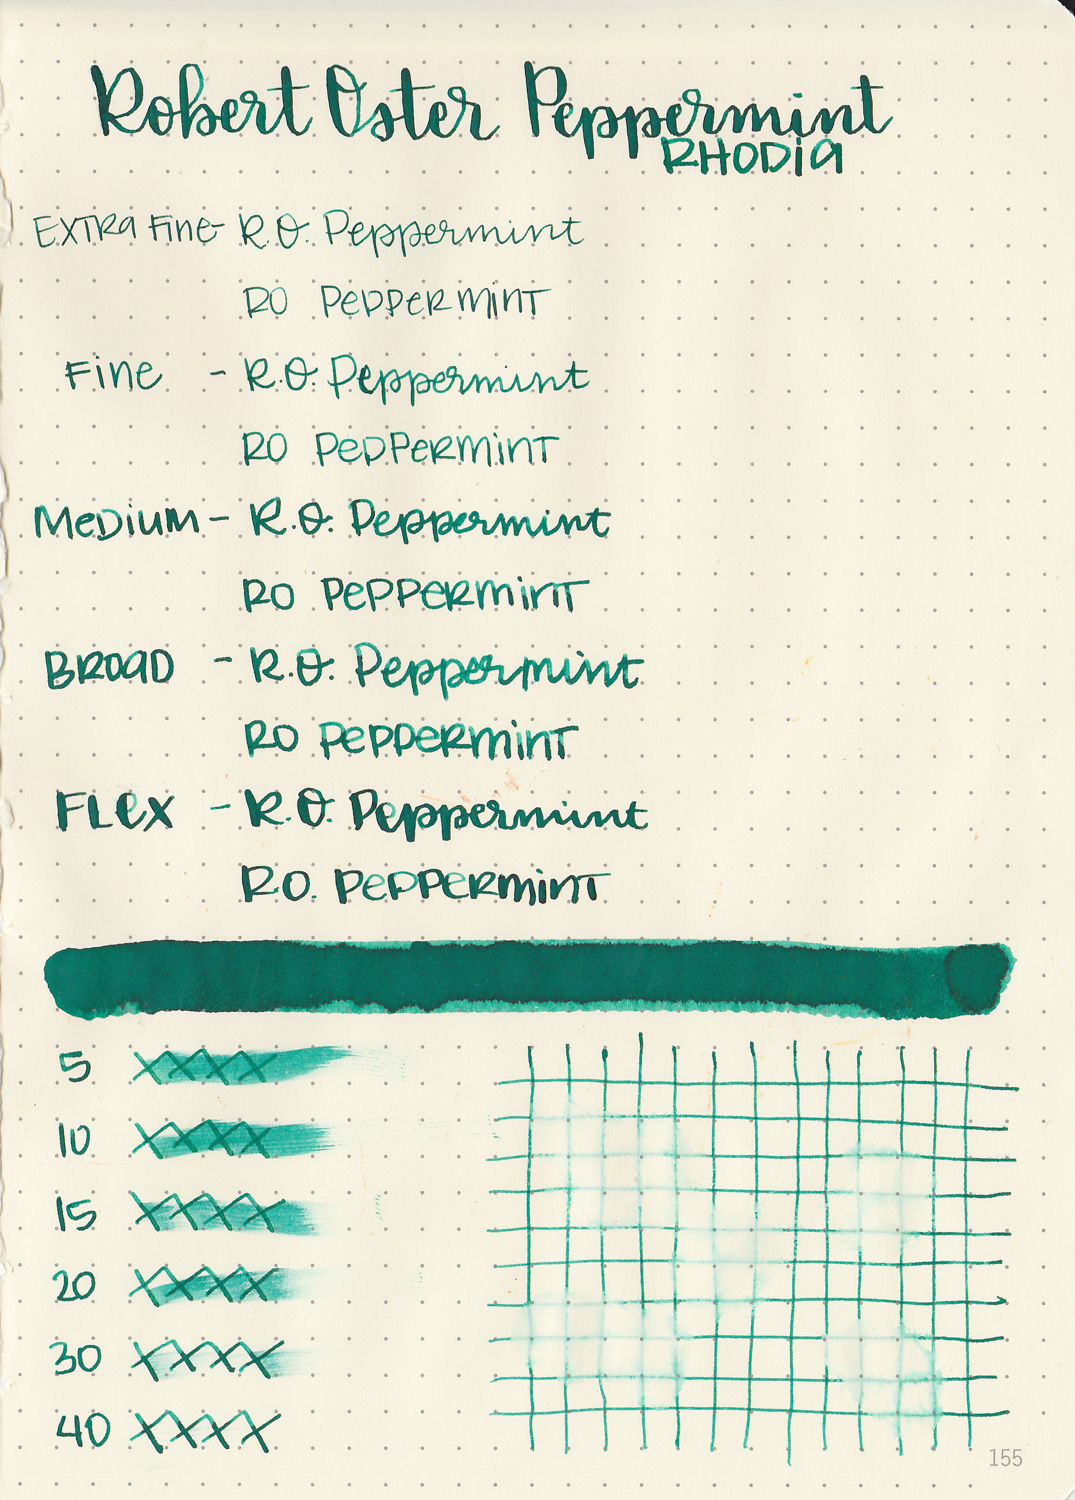 Robert Oster Peppermint
RHODIA
EXTRA Fine - R.O. Peppermint
RO PEPPERMINT
Fine - R.O. Peppermint
RO PEPPERMINT
MeDium - R.O. Peppermint
RO PEPPERMINT
BROAD - R.O. Peppermint
RO PEPPERMINT
FLEX - R.O. Peppermint
R.O. PEPPERMINT
5 XXXX
10 XXXX
15 XXXX
20 XXXX
30 XXXX
40 XXXX
155